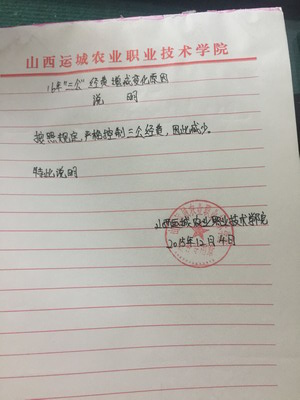 山西运城农业职业技术学院
16年“三公”经费增减变化原因
说 明
按照规定,严格控制三公经费,因此减少。
特此说明
山西运城农业职业技术学院
2015年12月4日